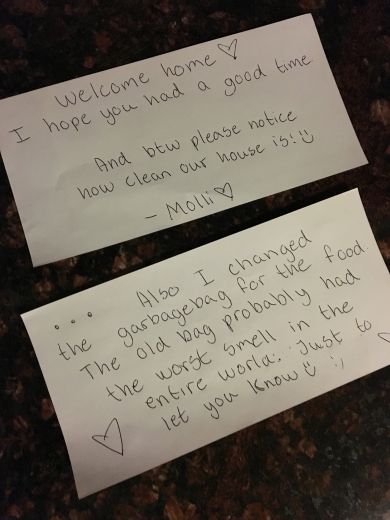 Welcome home ♡
I hope you had a good time
And btw please notice
how clean our house is! :)
- Molli ♡
... Also I changed
the garbagebag for the food.
The old bag probably had
the worst smell in the
entire world. Just to
let you know :) :)